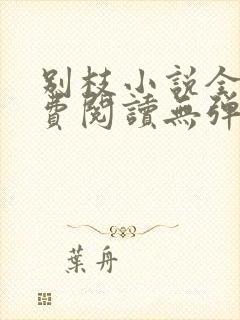 别枝小说全
費閱讀無彈
葉舟